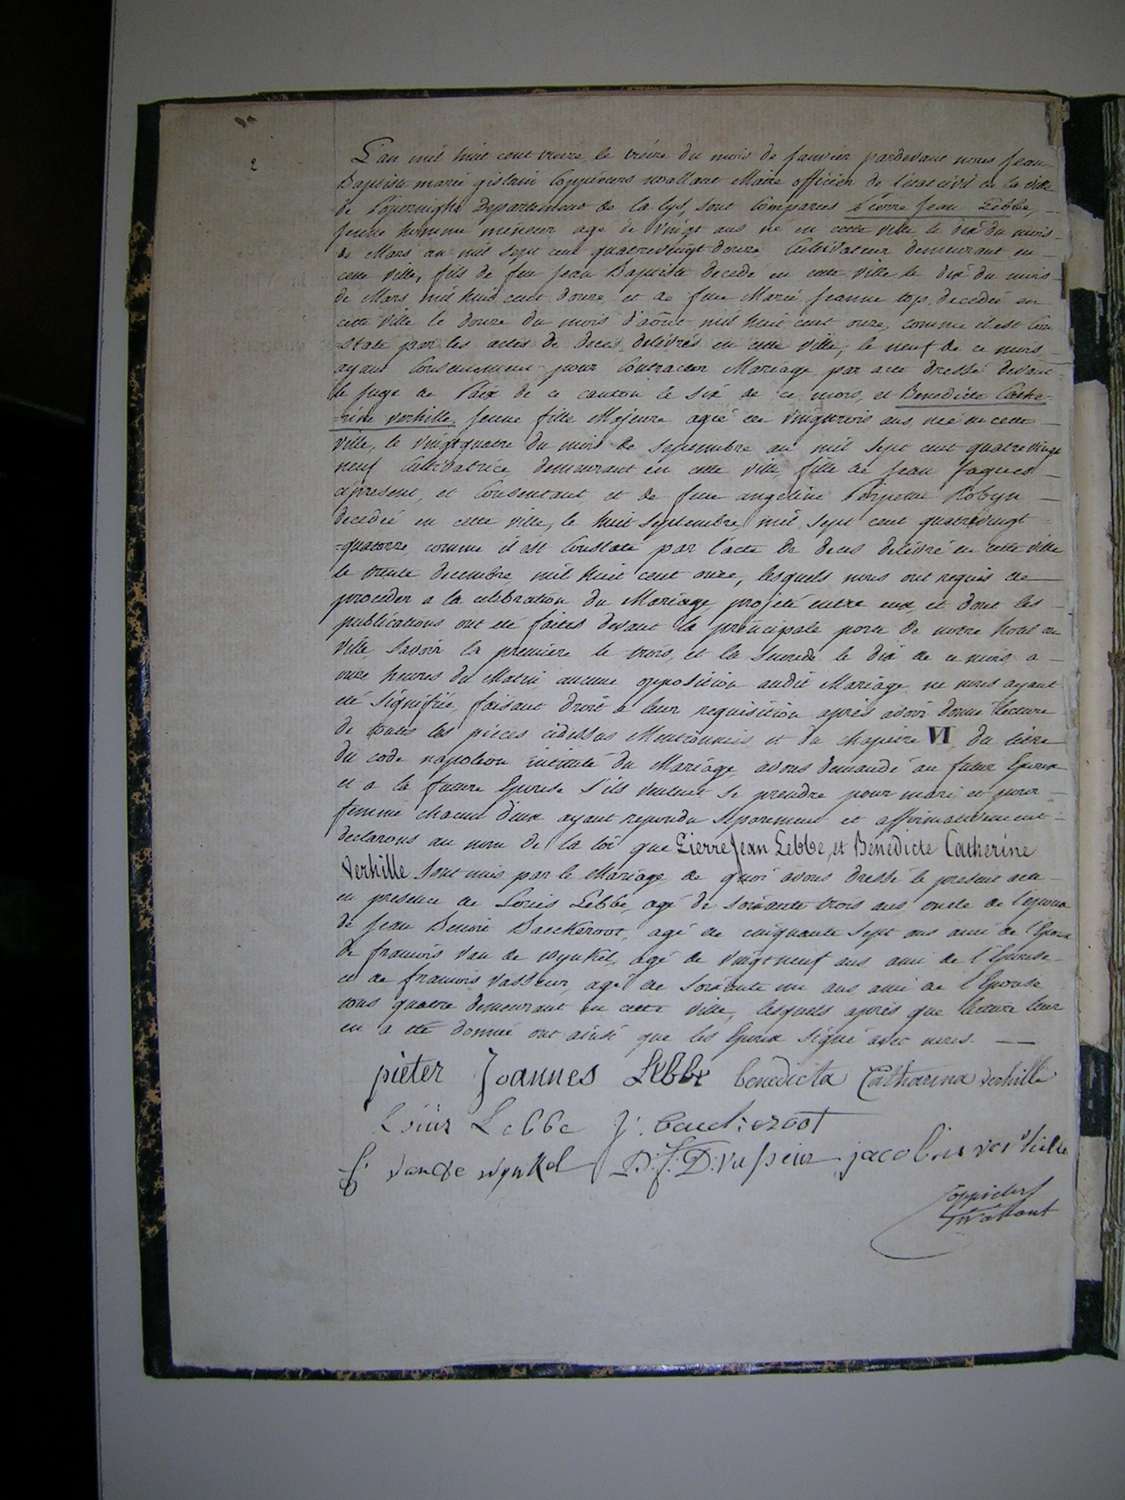 2
L'an mil huit cent treize, le treize du mois de Janvier pardevant nous Jean
Baptiste marie gislain Coppieters wallant Maire officier de l'état civil de la ville
de Poperinghe Departement de la Lys, sont Comparus Pierre Jean Lebbe,
jeune homme mineur agé de vingt ans né en cette ville le dix du mois
de Mars an mil sept cent quatrevingt douze Cultivateur demeurant en
cette ville, fils de feu Jean Baptiste decedé en cette ville le dix du mois
de Mars mil huit cent douze et de feue Marie Jeanne top decedée en
cette ville le douze du mois d'août mil huit cent onze, comme il est Con-
-staté par les actes de deces delivrés en cette ville, le neuf de ce mois
ayant Consentement pour Contracter Mariage par acte dressé devant
le juge de Paix de ce canton le six de ce mois, et Benedicte Cathe-
rine verhille, jeune fille Majeure agée de vingttrois ans née en cette
ville, le vingtquatre du mois de septembre an mil sept cent quatrevingt
neuf Cultivatrice, demeurant en cette ville, fille de Jean Jaques
apresent, et Consentant et de feue angeline Perpetue Robyn
decedée en cette ville, le huit septembre mil sept cent quatrevingt
-quatorze comme il est Constaté par l'acte de deces delivré en cette ville
le trente decembre mil huit cent onze, lesquels nous ont requis de
proceder a la celebration du Mariage projeté entre eux, et dont les
publications ont été faites devant la principale porte de notre hotel de
ville Savoir la premiere le trois, et la seconde le dix de ce mois a
onze heures du Matin aucune opposition audit Mariage ne nous ayant
été signifiée, faisant droit a leur requisition après avoir donné lecture
de toutes les pièces cidessus Mentionnées et du chapitre VI du titre
du code napoleon intitulé du Mariage avons demandé au futur Epoux
et a la future Epouse s'ils veulent se prendre pour mari et pour
femme chacun d'eux ayant repondu separement et affirmativement
declarons au nom de la loi que Pierre Jean Lebbe, et Bénédicte Catherine
Verhille sont unis par le Mariage de quoi avons dressé le present acte
en presence de Louis Lebbe, agé de soixante trois ans oncle de l'époux
de Jean Benoit Baeckeroot, agé de cinquante sept ans ami de l'Epoux
de francois van de wynkel, agé de vingtneuf ans ami de l'Epouse
et de francois vasseur, agé de soixante un ans ami de l'Epouse
tous quatre demeurant en cette ville, lesquels après que lecture leur
en a été donnée ont ainsi que les Epoux signé avec nous.
pieter Joannes Lebbe benedicta Catharina verhille
Louis Lebbe J. baeckeroot
f. van de wynkel
Coppieters
wallant